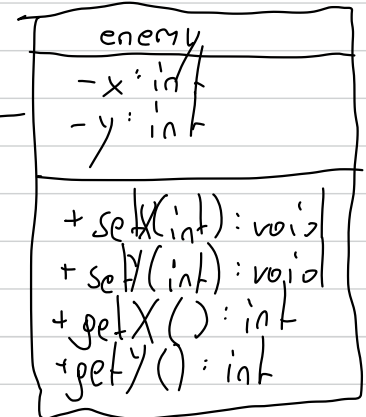 enemy
- x : int
- y : int
+ setX(int) : void
+ setY(int) : void
+ getX() : int
+ getY() : int